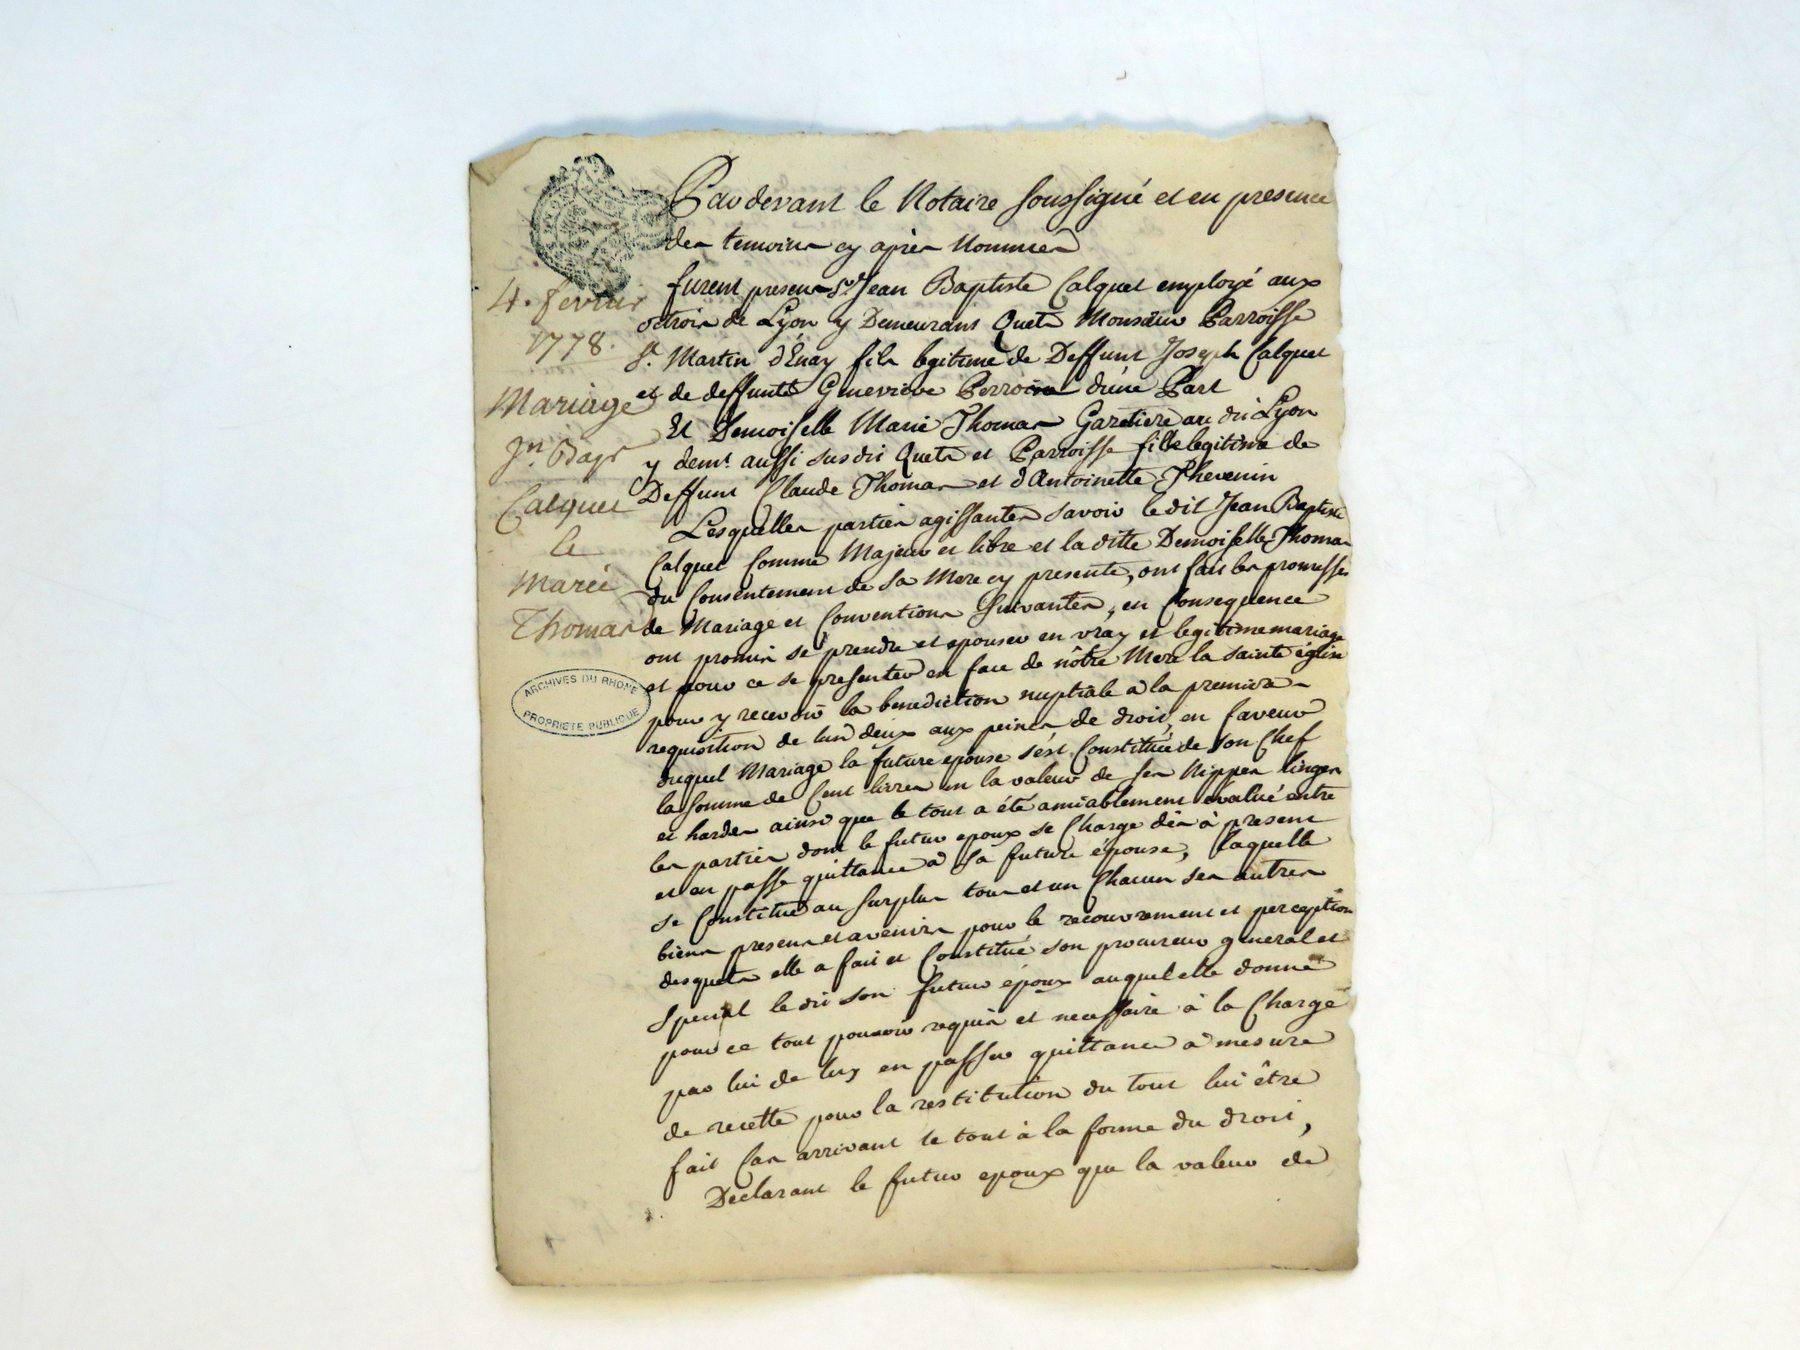 Pardevant le Notaire soussigné et en presence
des temoins cy après Nommés
furent presens Sr. Jean Baptiste Calquet employé aux
octrois de Lyon y Demeurant Quets Monsieur Parroisse
St. Martin d'Enay fils legitime de Deffunt Joseph Calquet
et de deffunte Genevieve d'une Part
Et Demoiselle Marie Thomas Gazetiere au dit Lyon
y demt. aussi susdit Quets et Parroisse fille legitime de
Deffunt Claude Thomas et d'Antoinette Thevenin
Lesquelles parties agissantes savoir ledit Jean Baptiste
Calquet Comme Majeur et libre et la ditte Demoiselle Thomas
du Consentement de sa Mere cy presente, ont fait les promesses
de Mariage et Conventions Suivantes, en Consequence
ont promis se prendre et epouser en vray et legitime mariage
et pour ce se presenter en face de nôtre Mere la sainte église
pour y recevoir la benediction nuptiale a la premiere
requisition de lun deux aux peines de droit, en faveur
duquel Mariage la future epouse s'est Constituée de son Chef
la somme de Cent livres en la valeur de ses Nippes linges
et hardes ainsi que le tout a été amiablement évalué entre
les parties dont le futur epoux se Charge dès à present
et en passe quittance a sa future épouse, laquelle
se Constitue au surplus tous et un Chacun ses autres
biens presens et avenirs pour le recouvrement et perception
desquels elle a fait et Constitué son procureur general et
special le dit son futur époux auquel elle donne
pour ce tout pouvoir requis et necessaire à la Charge
par lui de luy en passer quittance a mesure
de recette pour la restitution du tout lui être
fait Cas arrivant le tout à la forme du droit,
Declarant le futur epoux que la valeur de
4. fevrier
1778.
Mariage
Jn. Bapt
Calquet
&
Marie
Thomas
ARCHIVES DU RHONE
PROPRIETE PUBLIQUE